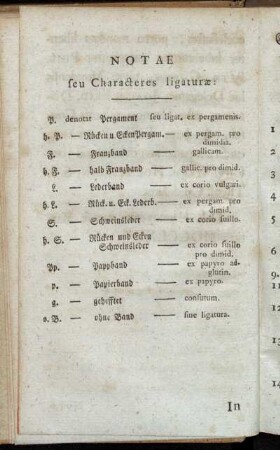 NOTAE
seu Characteres ligaturæ:
P. denotat Pergament seu ligat. ex pergamenis.
h. P. — Rücken u Ecken Pergam. — ex pergam. pro
dimidia.
F. — Franzband — gallicam.
h. F. — halb Franzband — gallic. pro dimid.
L. — Lederband — ex corio vulgari.
h. L. — Rück. u. Eck. Lederb. — ex pergam pro
dimid.
S. — Schweinsleder — ex corio suillo.
h. S. — Rücken und Ecken
Schweinsleder — ex corio suillo
pro dimid.
Pp. — Pappband — ex papyro ad-
glutin.
p. — Papierband — ex papyro.
g. — geheftet — consutum.
o. B. — ohne Band — sine ligatura.
In